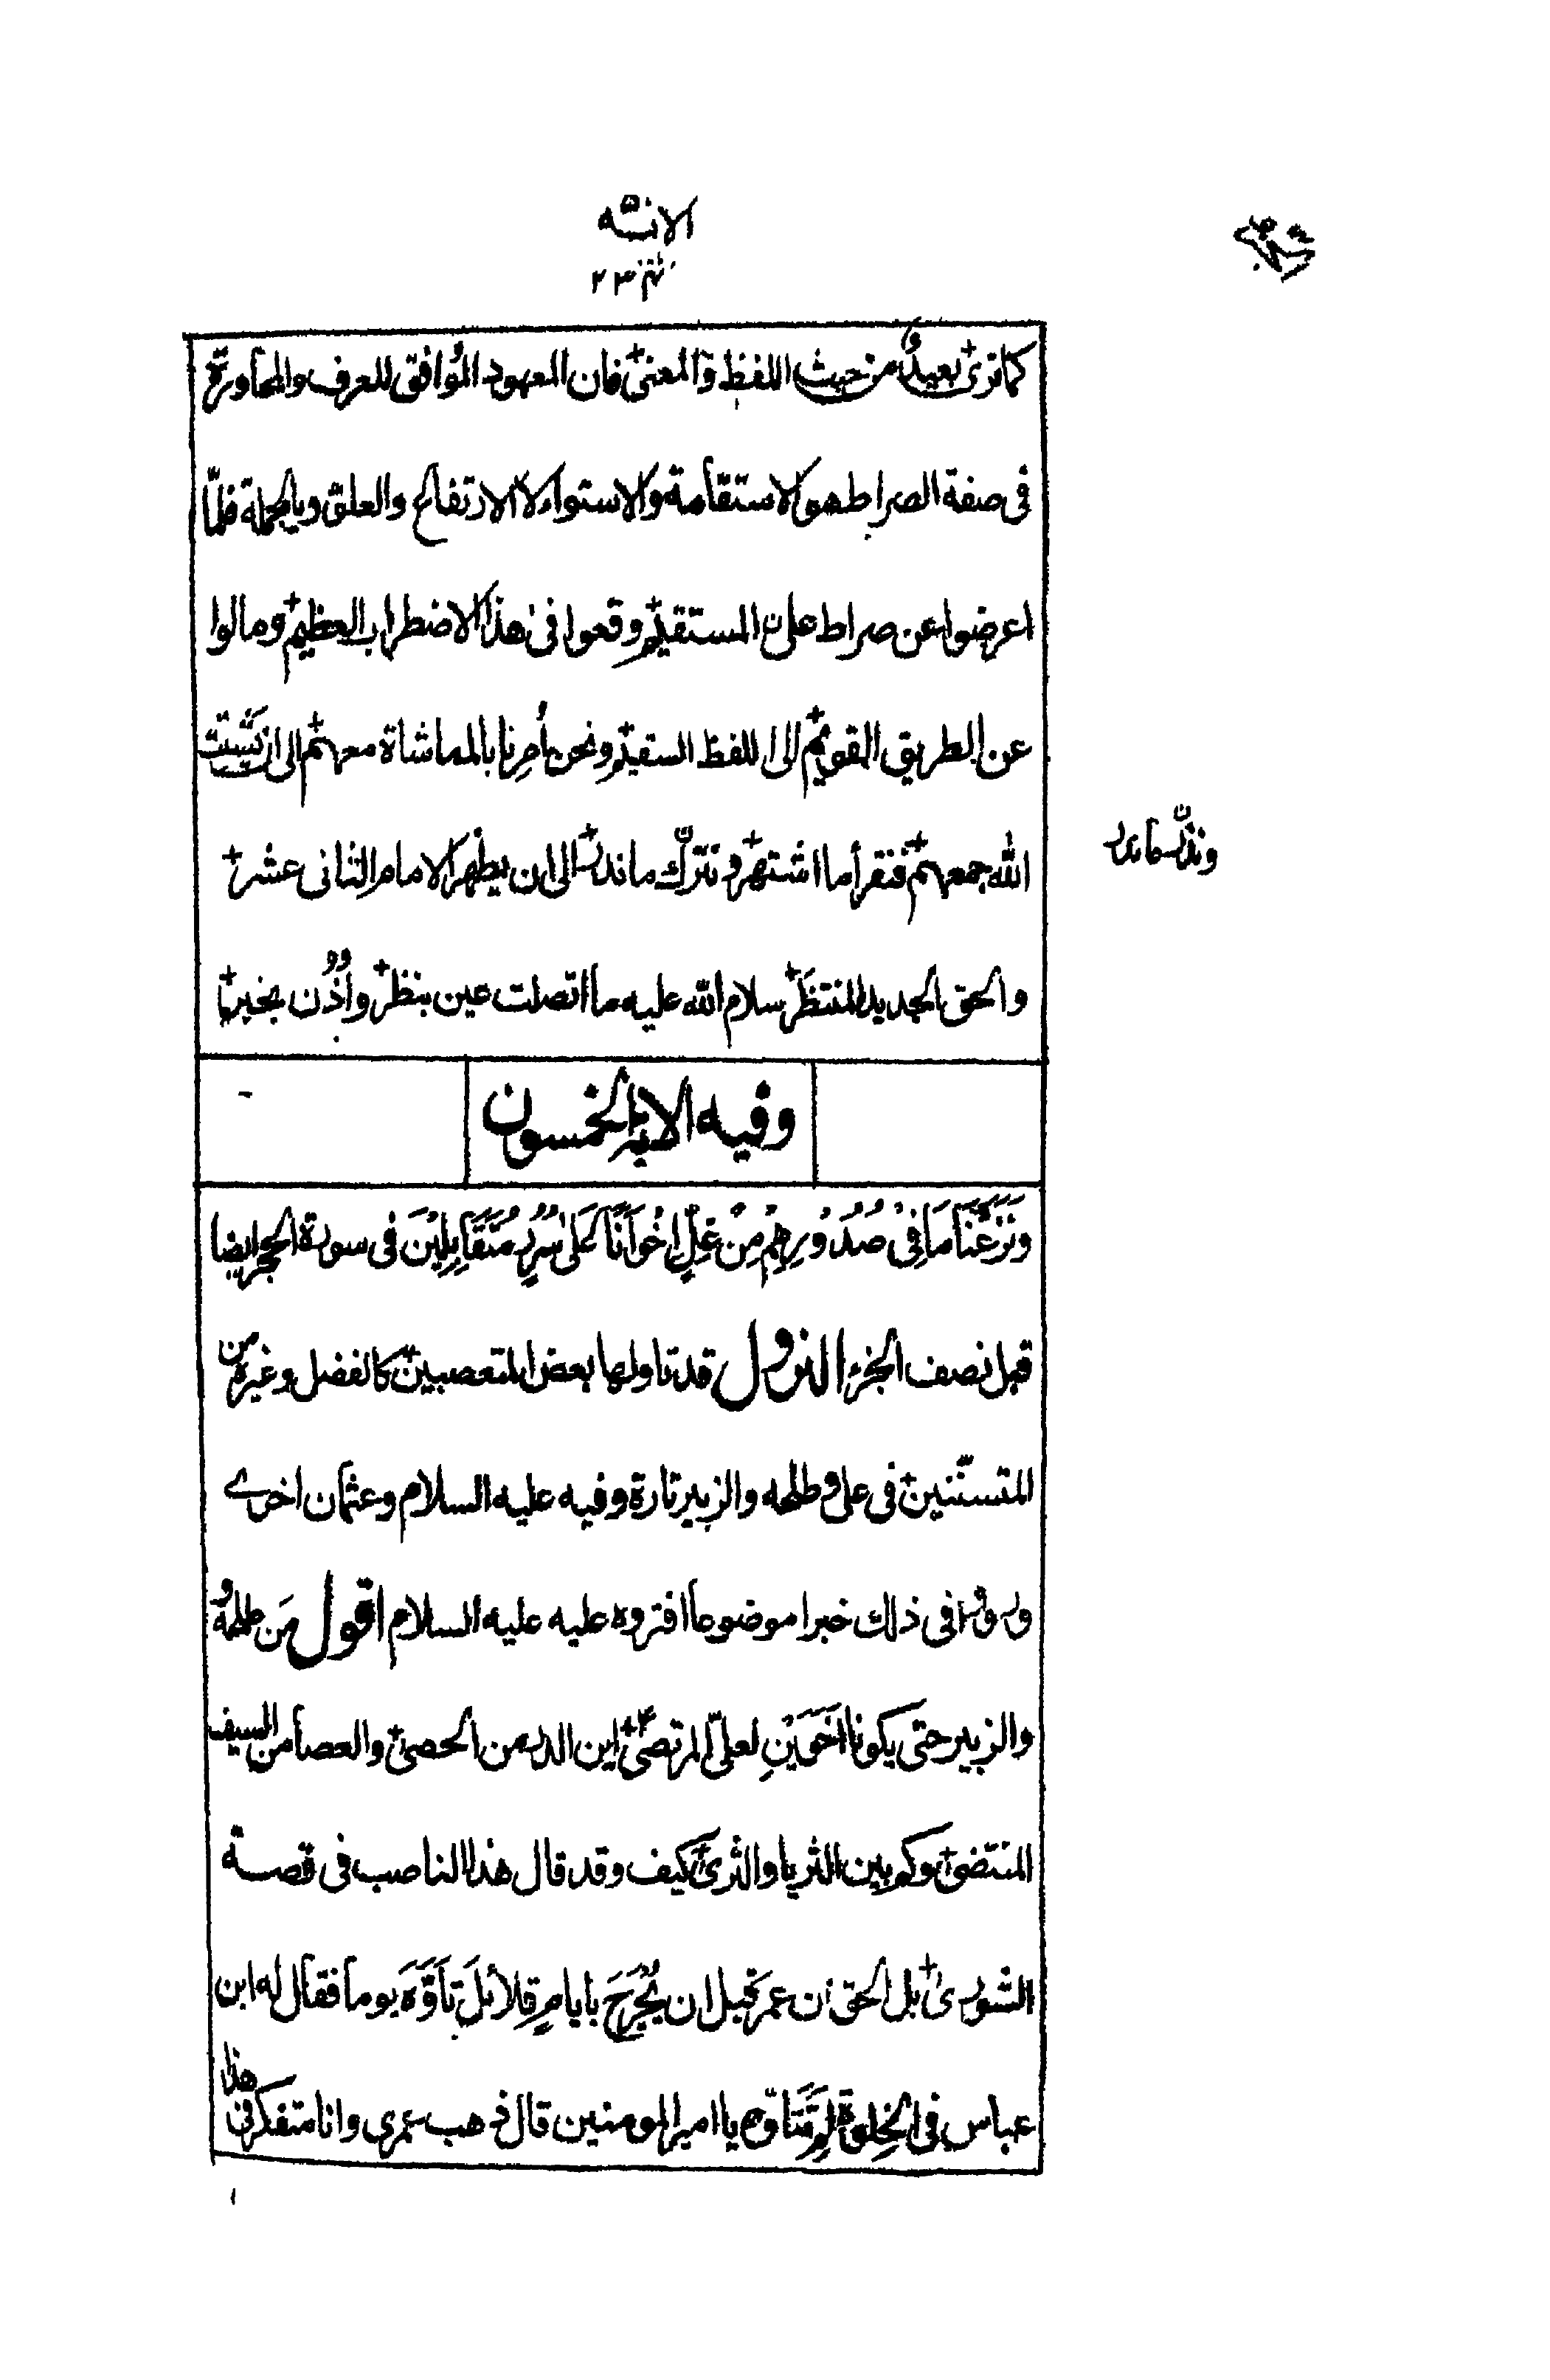 كما ترى بعيد من حيث اللفظ والمعنى فان المعهود الموافق للعرف والمحاورة
فى صفة الصراط هو الاستقامة والاستواء لا الارتفاع والعلو وبالجملة فلما
اعرضوا عن صراط على المستقيم وقعوا فى هذا الاضطراب العظيم ومالوا
عن الطريق القويم الى اللفظ السقيم ونحن أُمِرنا بالمماشاة معهم الى ان يشتت
الله جمعهم فنقرأ ما اشتهر ونترك ما ندر الى ان يظهر الامام الثانى عشر
ونذر ما ندر
والحق الجديد المنتظَر سلام الله عليه ما اتصلت عين بنظر واُذُن بخبر
وفيه الاية الخمسون
وَنَزَعْنَا مَا فِىْ صُدُوْرِهِمْ مِنْ غِلٍّ اِخْوَانًا عَلٰى سُرُرٍ مُتَقَابِلِيْنَ فى سورة الحجر ايضا
قبل نصف الجزء النزول قد تاولها بعض المتعصبين كالفضل وغيره من
المتسننين فى على وطلحه والزبير تارة وفيه عليه السلام وعثمان اخرى
ورووا فى ذلك خبرا موضوعا افتروه عليه عليه السلام اقول مَن طلحةُ
والزبير حتى يكونا اَخَوَيْنِ لعلىّ المرتضى اين الدر من الحصى والعصا من السيف
المنتضى وكم بين الثريا والثرى كيف وقد قال هذا الناصب فى قصة
الشورى بل الحق ان عمر قبل ان يُجْرَحَ بايامٍ قلائلَ تَأَوَّهَ يوما فقال له ابن
عباس فى الخلوة لِمَ تَتَاوّه يا امير المومنين قال ذهب عمرى وانا متفكر فى هذا